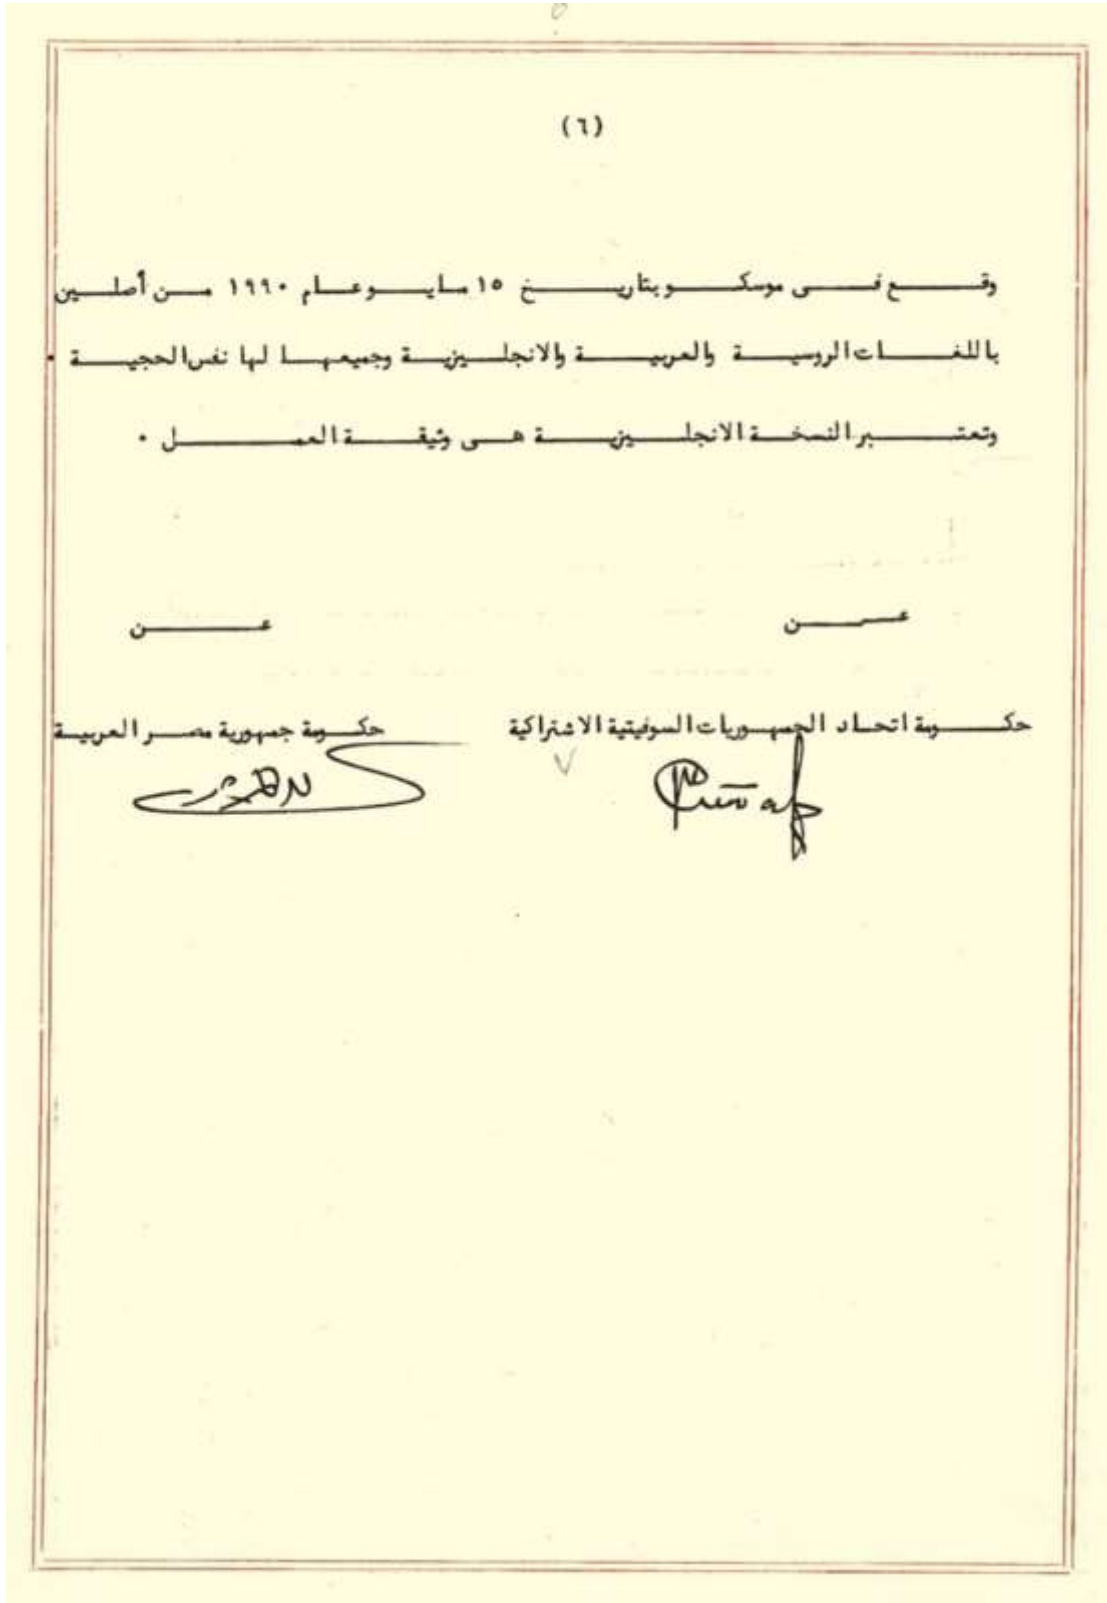 (٦)
وقع فى موسكو بتاريخ ١٥ مايو عام ١٩٩٠ من أصلين
باللغات الروسية والعربية والانجليزية وجميعها لها نفس الحجية .
وتعتبر النسخة الانجليزية هى وثيقة العمل .
عن
عن
حكومة اتحاد الجمهوريات السوفيتية الاشتراكية
حكومة جمهورية مصر العربية